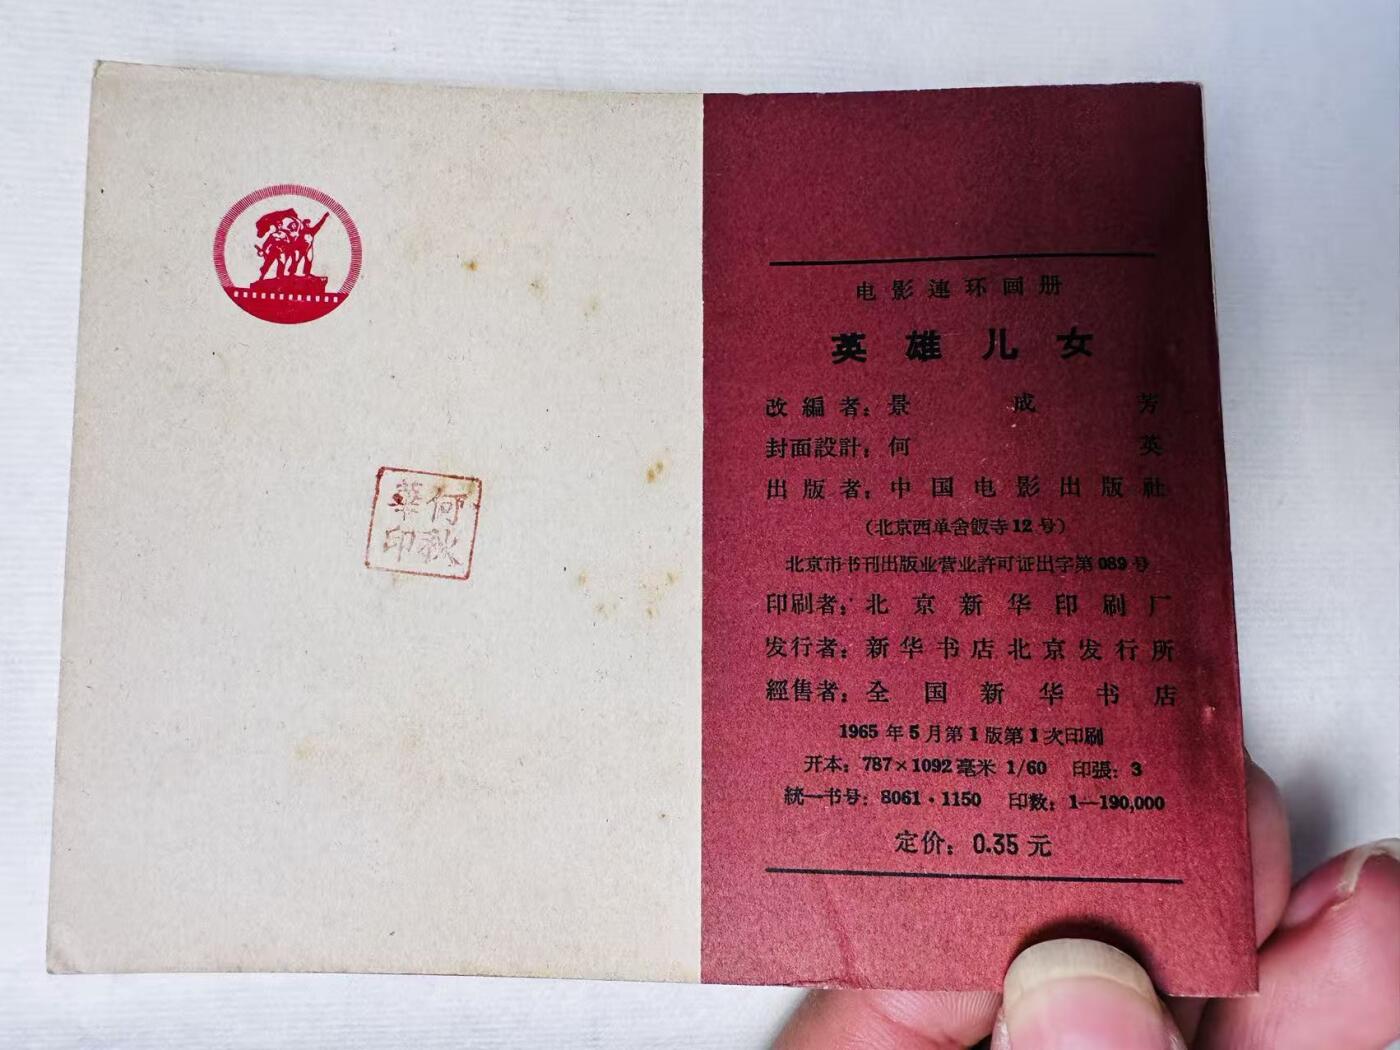 何秋
華印
电影連环画册
英雄儿女
改編者：景成芳
封面設計：何英
出版者：中国电影出版社
（北京西单舍飯寺12号）
北京市书刊出版业营业許可证出字第089号
印刷者：北京新华印刷厂
发行者：新华书店北京发行所
經售者：全国新华书店
1965年5月第1版第1次印刷
开本：787×1092毫米 1/60 印張：3
統一书号：8061·1150 印数：1—190,000
定价：0.35元